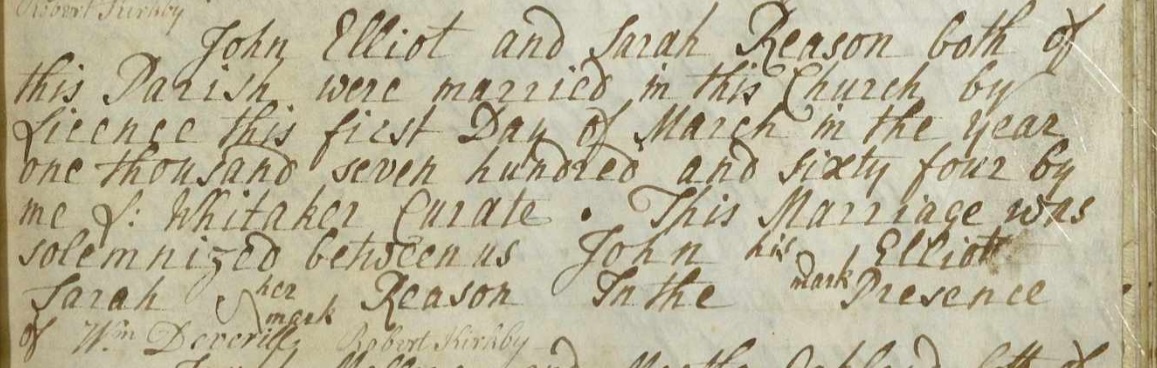 Robert Kirkby
John Elliot and Sarah Reason both of
this Parish were married in this Church by
Licence this first Day of March in the year
one thousand seven hundred and sixty four by
me J: Whitaker Curate . This Marriage was
solemnized between us John his mark Elliott
Sarah her mark Reason In the Presence
of Wm Deverill Robert Kirkby
and Martha both of